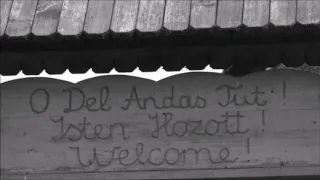 O Del Andas Tut !
Isten Hozott !
Welcome !